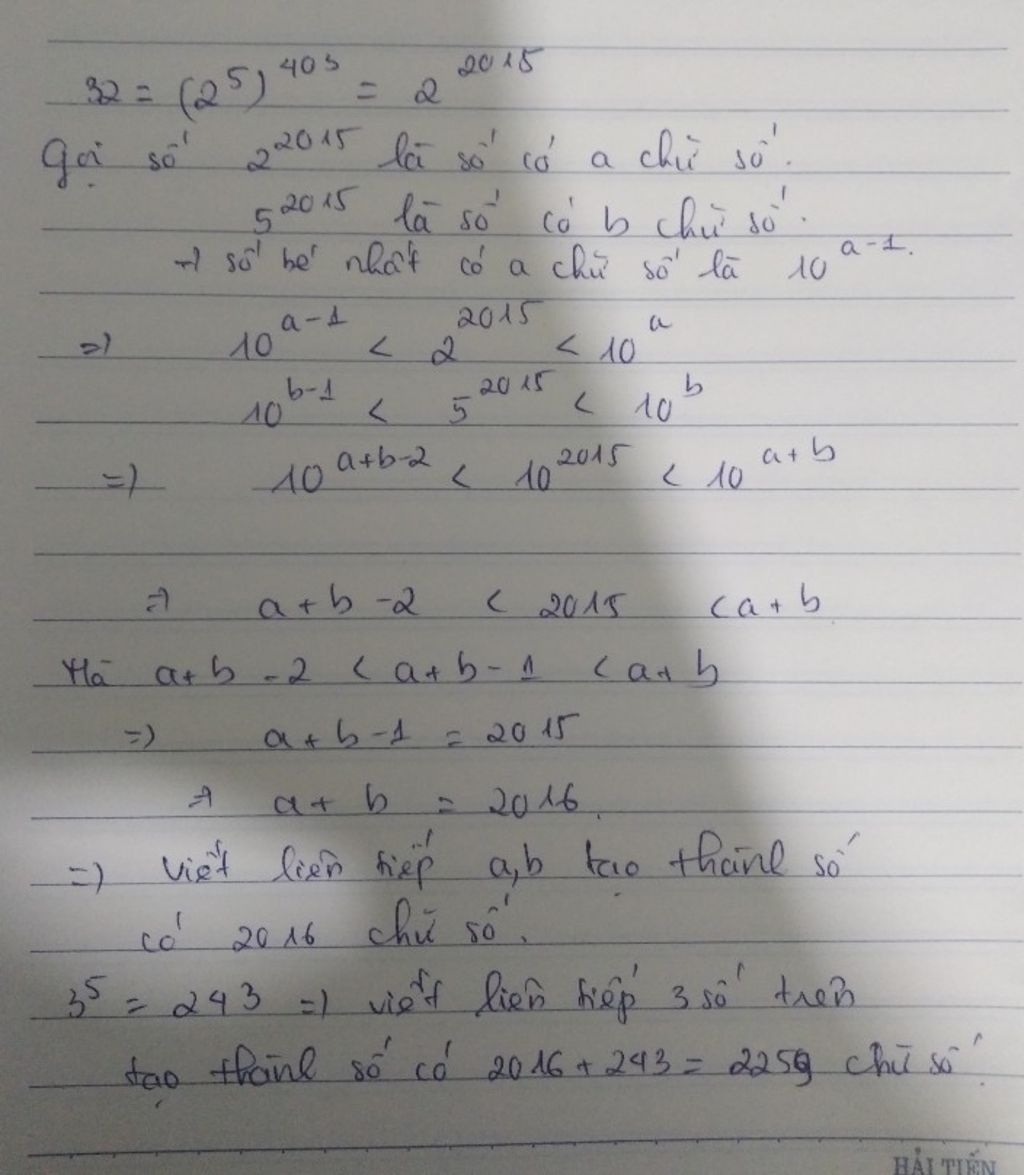 32 = (2^5)^403 = 2^2015
Gọi số 2^2015 là số có a chữ số.
5^2015 là số có b chữ số.
→ số bé nhất có a chữ số là 10^a-1.
=) 10^a-1 < 2^2015 < 10^a
10^b-1 < 5^2015 < 10^b
=) 10^a+b-2 < 10^2015 < 10^a+b
=) a+b-2 < 2015 < a+b
Mà a+b-2 < a+b-1 < a+b
=) a+b-1 = 2015
=) a+b = 2016.
=) viết liên tiếp a,b tạo thành số
có 2016 chữ số.
3^5 = 243 =) viết liên tiếp 3 số trên
tạo thành số có 2016+243 = 2259 chữ số.
HẢI TIẾN